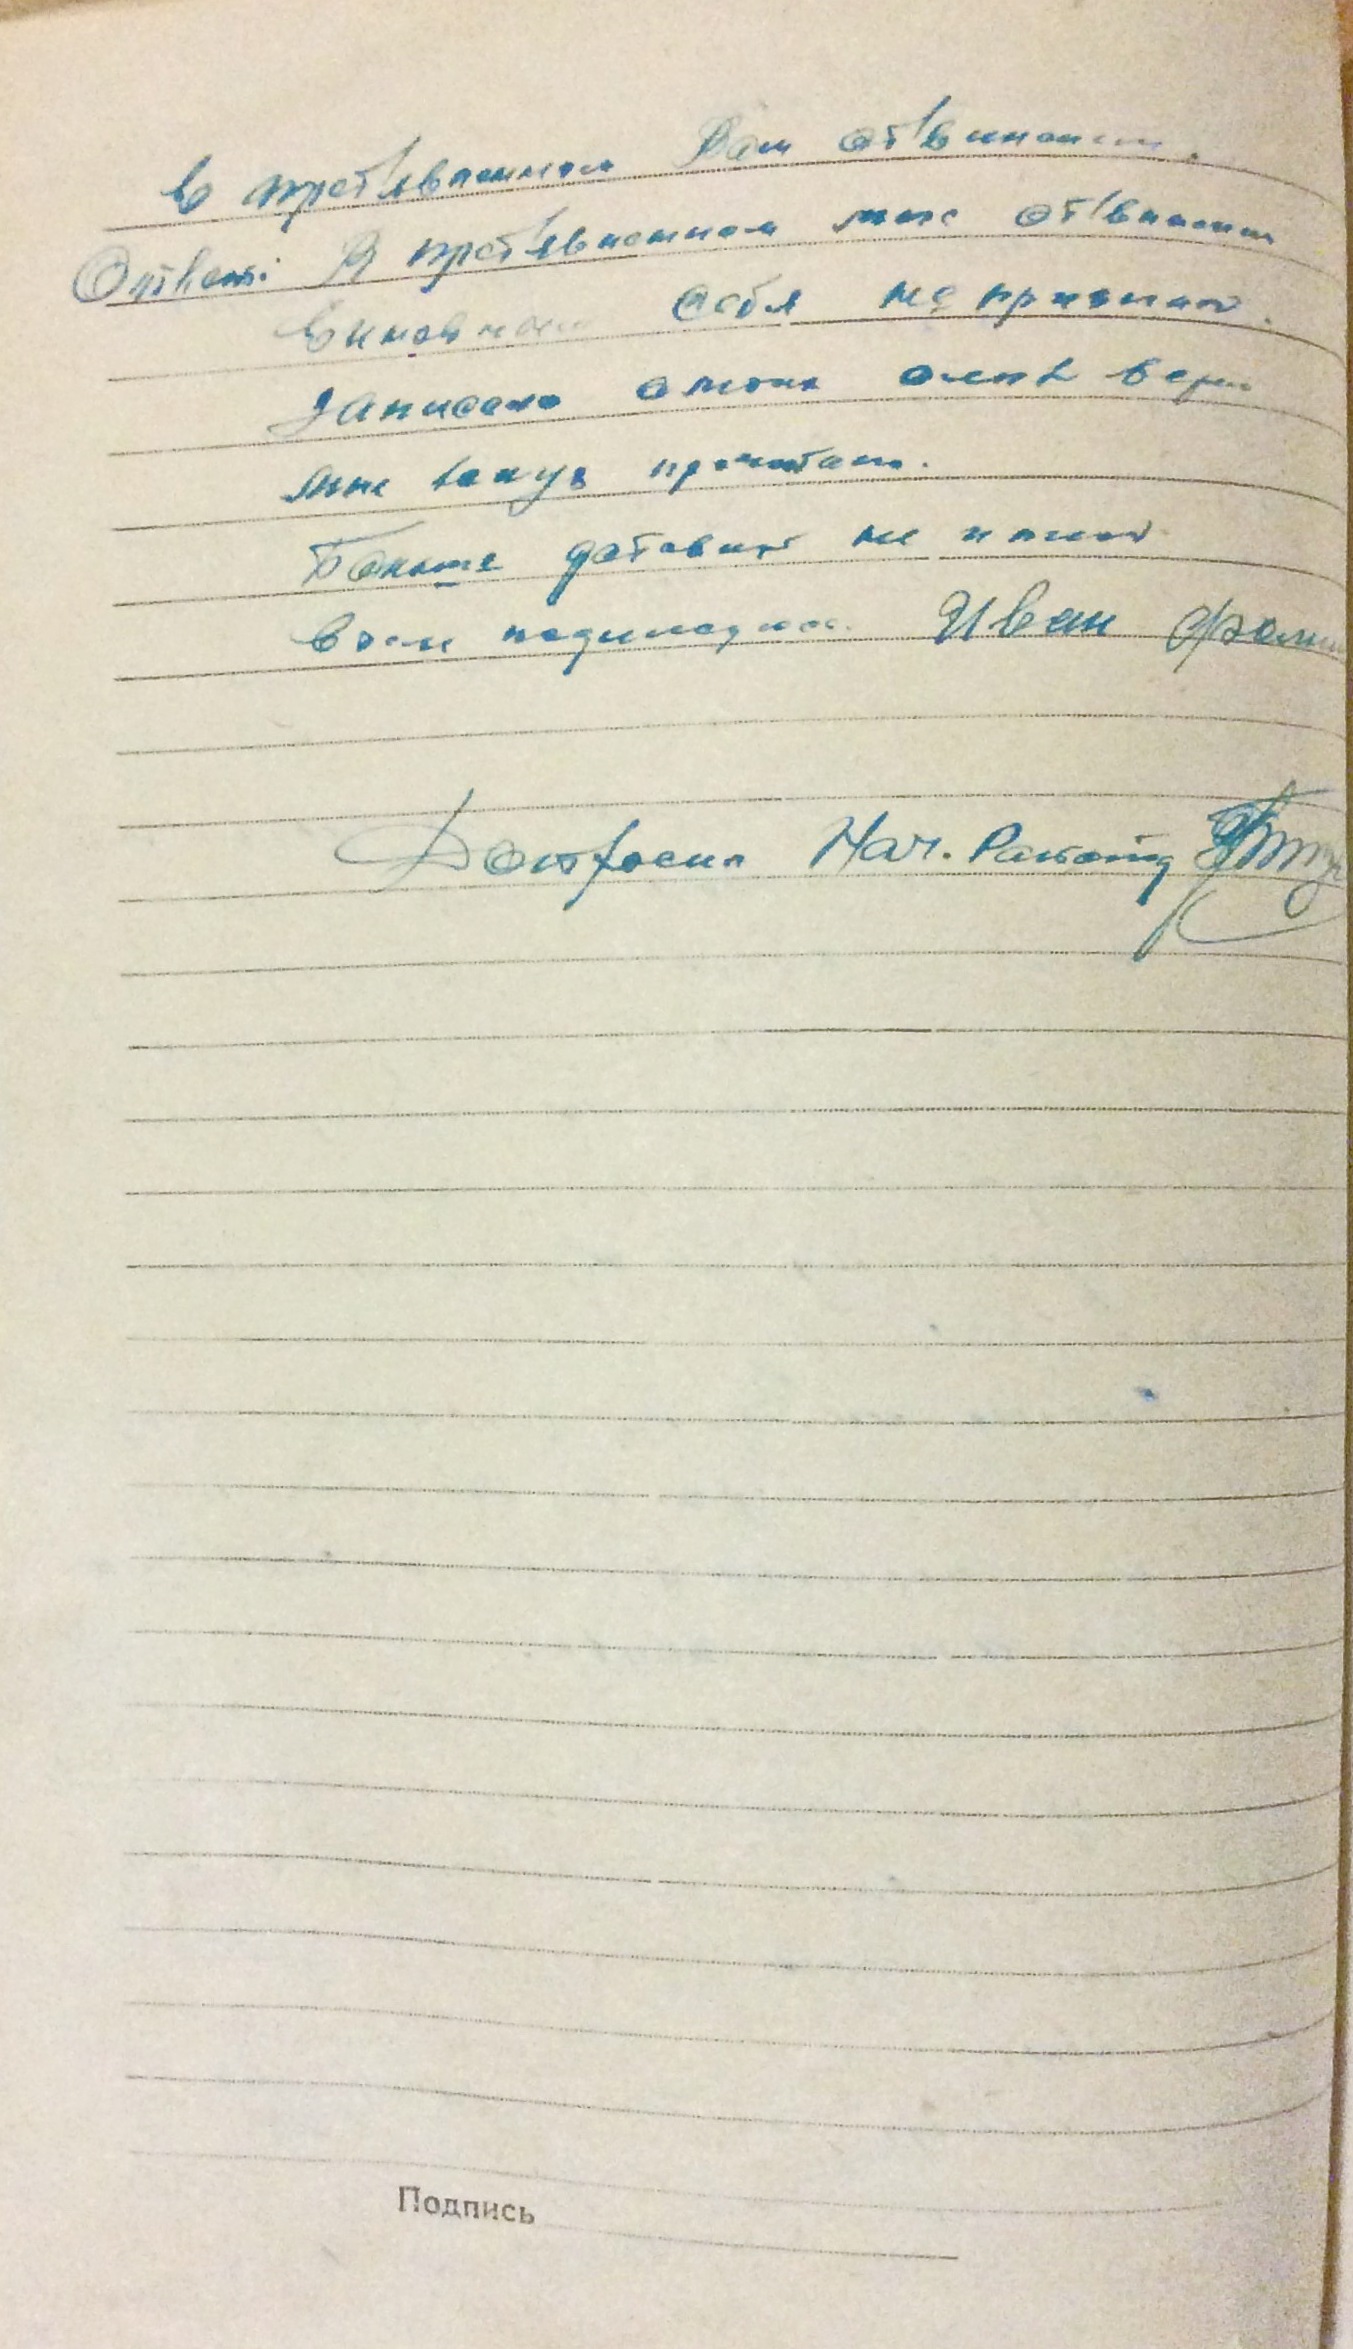 в пред'явленном Вам об'винении.
Ответ: В пред'явленном мне об'винении
виновным себя не признаю.
Записано с моих слов верно
мне вслух прочитано.
Больше добавить не имею
в чем подписуюсь. Иван
Допросил Нач.
Подпись